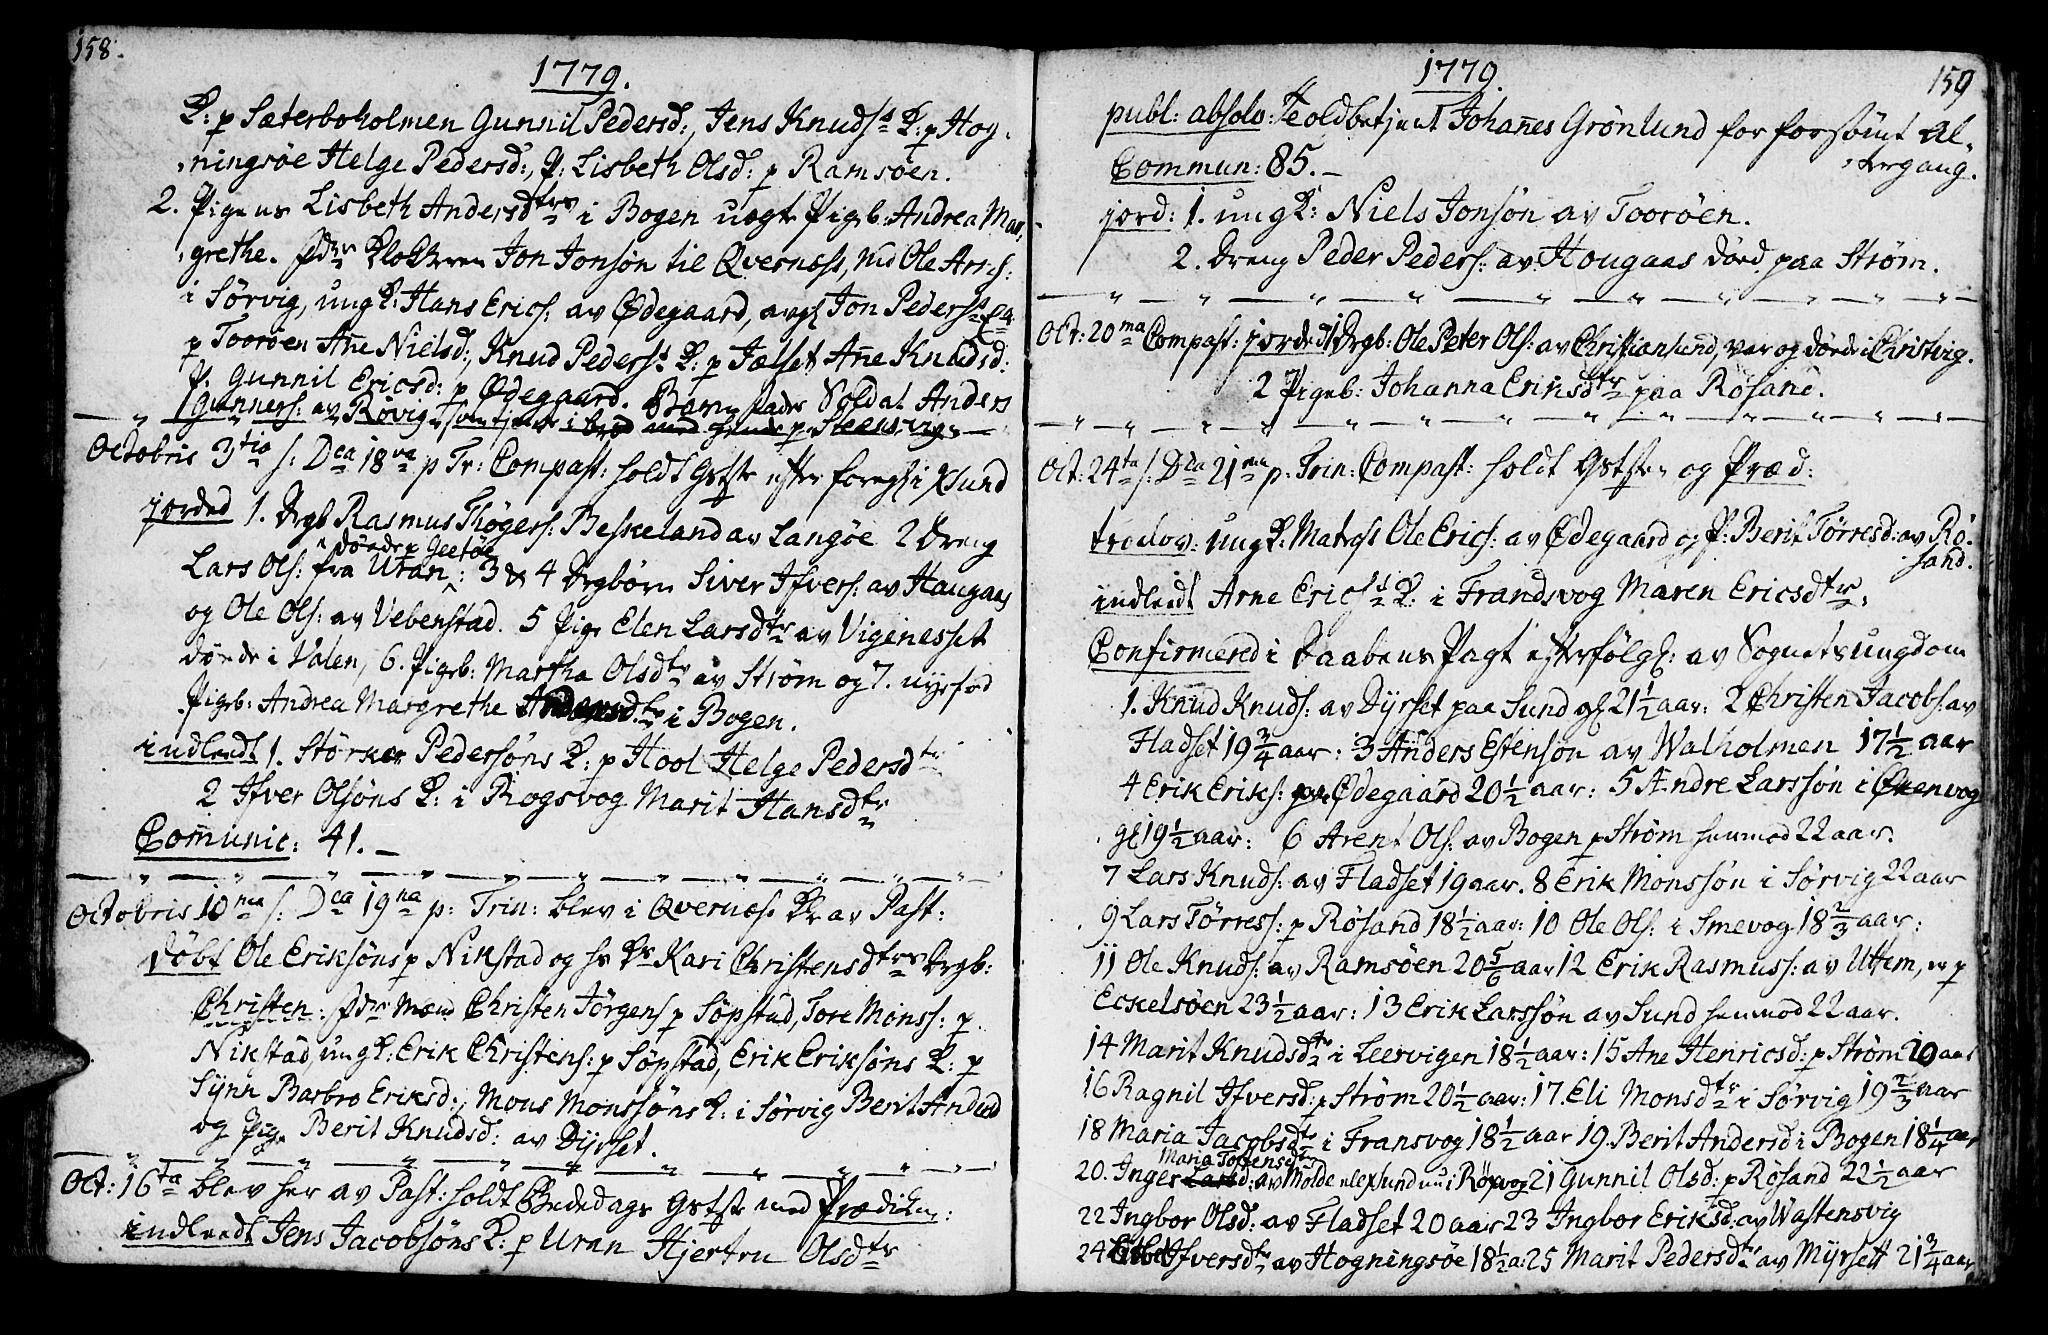 158.
1779.
K: p Sæterboholmen Gunnil Pedersd:, Jens Knudss K: p Hog-
ningsøe Helge Pedersd:, P: Lisbeth Olsd: p Ramsøen.
2. Pigens Lisbeth Andersdtrs i Bogen uegte Pigeb: Andrea Mar-
grethe. fdre Klokkeren Jon Jonsøn til Qvernæss, Md Ole Arnes:
i Sørvig, ungK: Hans Erics: av Ødegaard, Jon Pederss
p Toorøen Ane Nielsd:, Knud Pederss K: p Jælset Ane Knudsd:
P. Gunnil Ericsd: p Ødegaard. Barnefader Soldat Anders
Gunners: av Røvig, som tjente i p Steensvig
Octobris 3tia s: Dca 18va p Tr: Compast: holdt Gstste efter foreg: i Xsund
jorded 1. Drgb Rasmus Thøgers: Beskeland av Langøe 2 Dreng
Lars Ols: fra Uran døede p Jeetøe: 3 & 4 Drgbørn Siver Ifvers: av Haugaas
og Ole Ols: av Vebenstad. 5 Pige Elen Larsdtr av Vigenesset
døde i Valen, 6. Pigeb: Martha Olsdtr av Strøm og 7. nyefød
Pigeb: Andrea Margrethe Andersdtr i Bogen.
indledt 1. Størker Pedersøns K: p Hool Helge Pedersdtr
2 Ifver Olsøns K: i Rogsvog Marit Hansdtr
Comunic: 41.
Octobris 10ma s: Dca 19na p: Trin: blev i Qvernæs K: av Past:
døbt Ole Eriksøns p Nikstad og hs Kr Kari Christensdtrs Drgb:
Christen. fdre Mænd Christen Jørgens p Søpstad, Tore Monss: p
Nikstad, ungK: Erik Christens: p Søpstad, Erik Eriksøns K: p
Synn Barbro Eriksd:, Mons Monssøns K: i Sørvig Berit Andersd
og Pige Berit Knudsd: av Dyrset.
Oct: 16ta blev her av Past: holdt Bededags Gstste med Prædiken:
indledt Jens Jacobsøns K: p Uran Hjertru Olsdtr
159
1779
publ: absolv: Toldbetjent Johañes Grønlund for forsømt Al-
tergang.
Commun: 85.
jord: 1. ungK: Niels Jonsøn av Toorøen.
2. Dreng Peder Peders: av Hougaas død paa Strøm.
Oct: 20ma Compast: jordet 1 Drgb: Ole Peter Ols: av Christiansund, var og døde i Christvig.
2 Pigeb: Johanna Eriksdtr paa Røsand.
Oct: 24ta s: Dca 21ma p: Trin: Compast: holdt Gstste og Præd:
trolov: ungK: Matross Ole Erics: av Ødegaard og P: Berit Tørresd: av Rø-
sand.
indledt Arne Ericss K: i Frandsvog Maren Ericsdtr.
Confirmered i Daabens Pagt efterfølg: av Sognets ungdom
1. Knud Knuds: av Dyrset paa Sund gl 21 1/2 aar: 2 Christen Jacobs: av
Fladset 19 3/4 aar: 3 Anders Estensøn av Walholmen 17 1/2 aar
4 Erik Eriks: paa Ødegaard 20 1/2 aar: 5 Andre Larssøn i Ørenvog
gl 19 1/2 aar: 6 Arent Ols: av Bogen p Strøm henmod 22 aar.
7 Lars Knuds: av Fladset 19 aar. 8 Erik Monssøn i Sørvig 22 aar
9 Lars Tørress: p Røsand 18 1/2 aar: 10 Ole Ols: i Smevog 18 2/3 aar:
11 Ole Knuds: av Ramsøen 20 5/6 aar 12 Erik Rasmuss: av Uttem, er p
Eckelsøen 23 1/2 aar: 13 Erik Larssøn av Sund henmod 22 aar.
14 Marit Knudsdtr i Leervigen 18 1/2 aar: 15 Ane Henricsd: p Strøm 20 aar
16 Ragnil Ifversd: p Strøm 20 1/2 aar: 17. Eli Monsdtr i Sørvig 19 2/3 aar
18 Maria Jacobsdtr i Fransvog 18 1/2 aar 19. Berit Andersd i Bogen 18 1/4 aar
Maria Tostensdtr
20. Inger Larsd: av Molde el: Xsund nu i Røsvog 21 Gunnil Olsd: p Røsand 22 1/2 aar
22 Ingbor Olsd: av Fladset 20 aar 23 Ingbor Eriksd: av Wastensvig
24 Ifversdtr av Hogningsøe 18 1/2 a: 25 Marit Pedersdtr av Myrsett 21 3/4 aar